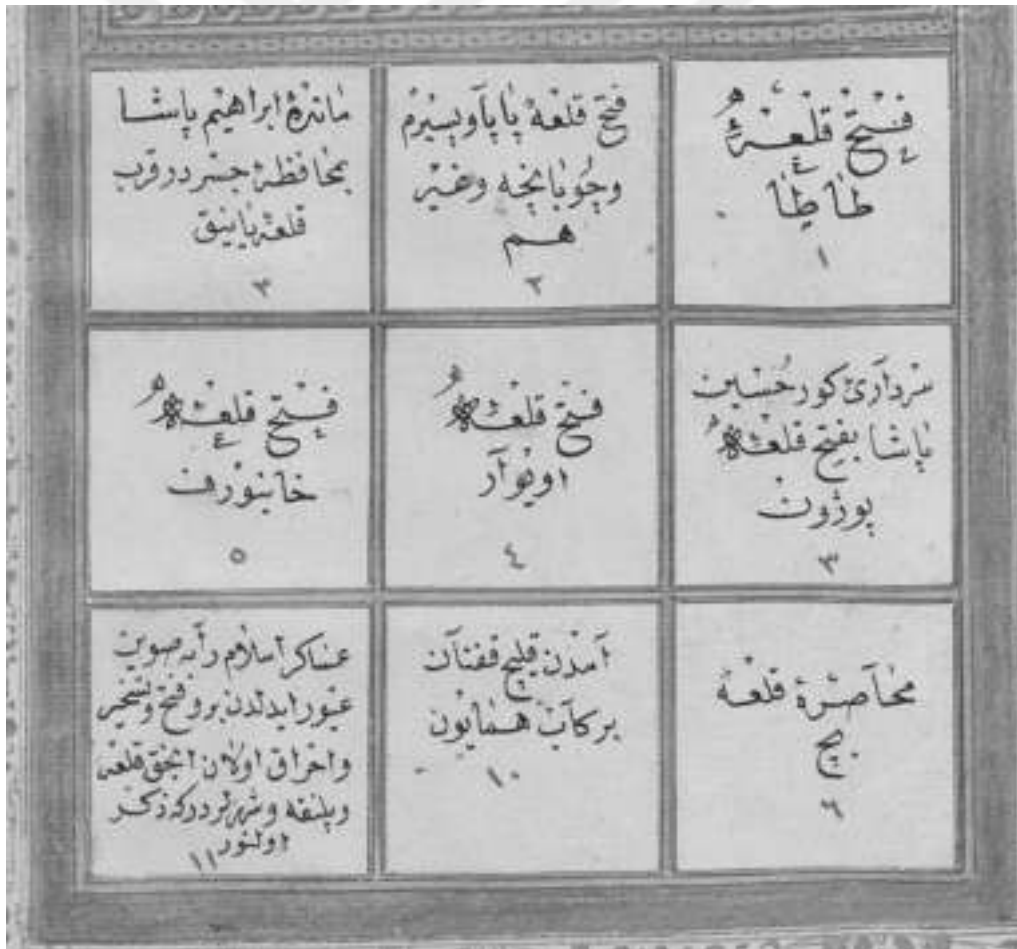 فتح قلعهٔ
طاطا
١
فتح قلعهٔ پاپا وپسپرم
وچوبانجه وغیر
هم
٢
ماندن ابراهیم پاشا
بمحافظهٔ جسر در قرب
قلعهٔ یانیق
٣
سرداری کور حسین
پاشا بفتح قلعهٔ
پوژون
٣
فتح قلعهٔ
اویوار
٤
فتح قلعهٔ
خاینورف
٥
محاصرهٔ قلعه
بچ
٦
آمدن قلیچ قفتان
برکاب همایون
١٠
عساکر اسلام رابه صوین
عبور ایدلدن برو فتح وتسخیر
واحراق اولان انجق قلعه
وپلنقه وشهرلردرکه ذکر
اولنور ١١